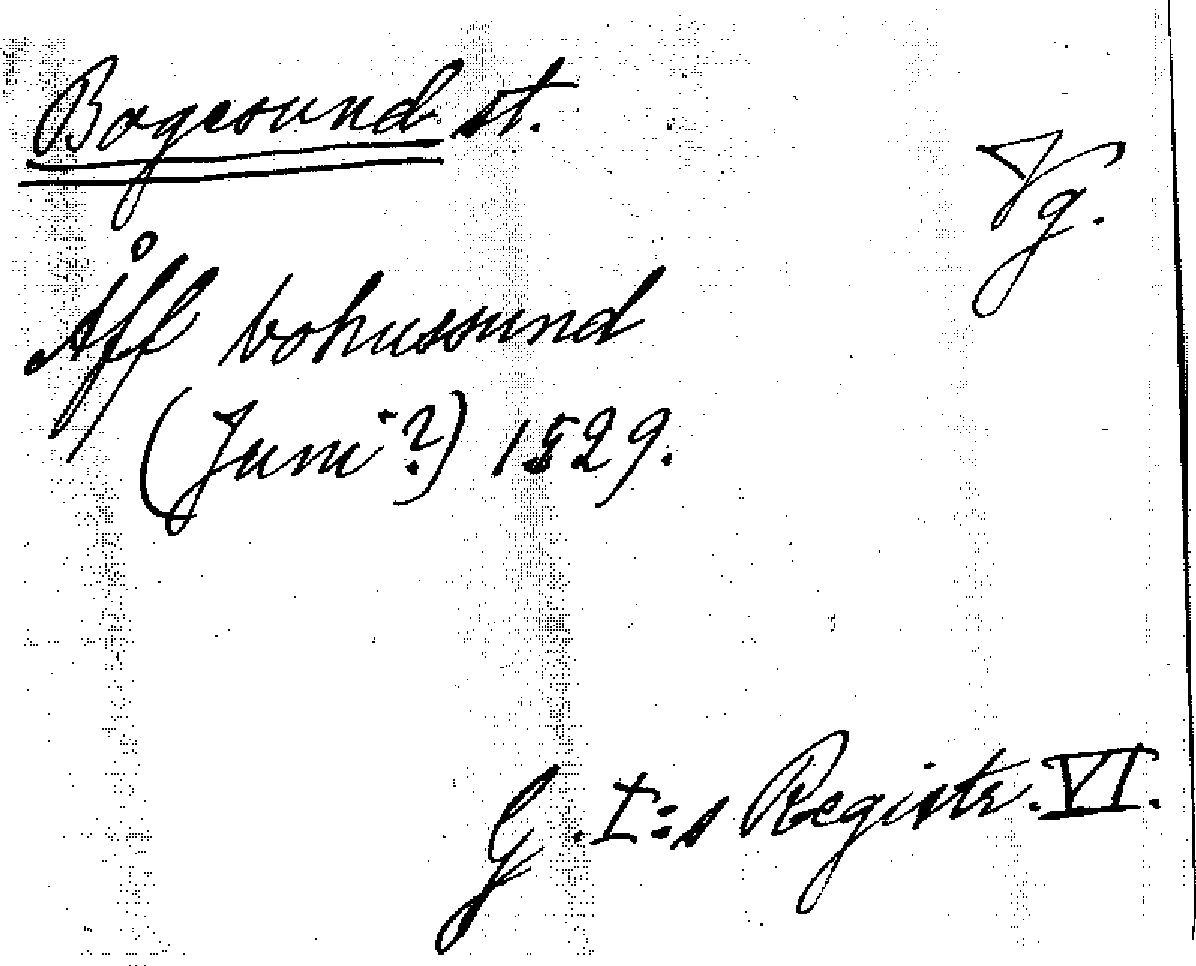 Bogesund st.
Vg.
Åff bohussund
(Juni?) 1529.
G. I:s Registr. VI.